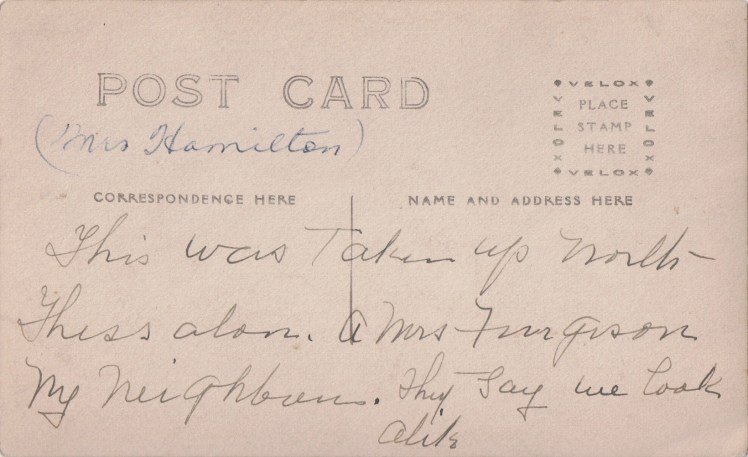 POST CARD
VELOX
VELOX
VELOX
VELOX
PLACE
STAMP
HERE
(Mrs Hamilton)
CORRESPONDENCE HERE
NAME AND ADDRESS HERE
This was Taken up North
Thessalon. a Mrs Furgison
My Neighbour. They Say we look
alike